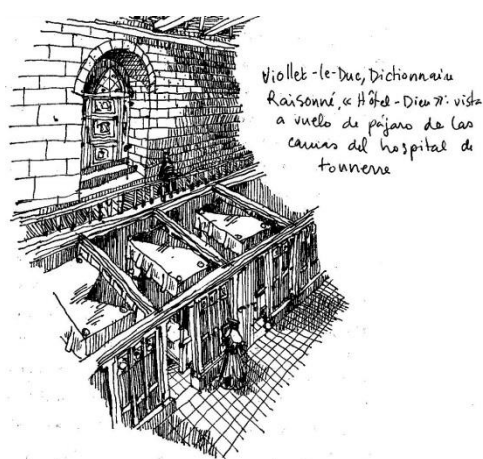 Viollet-le-Duc, Dictionnaire
Raisonné, « Hôtel-Dieu »: vista
a vuelo de pájaro de las
camas del hospital de
tonnerre